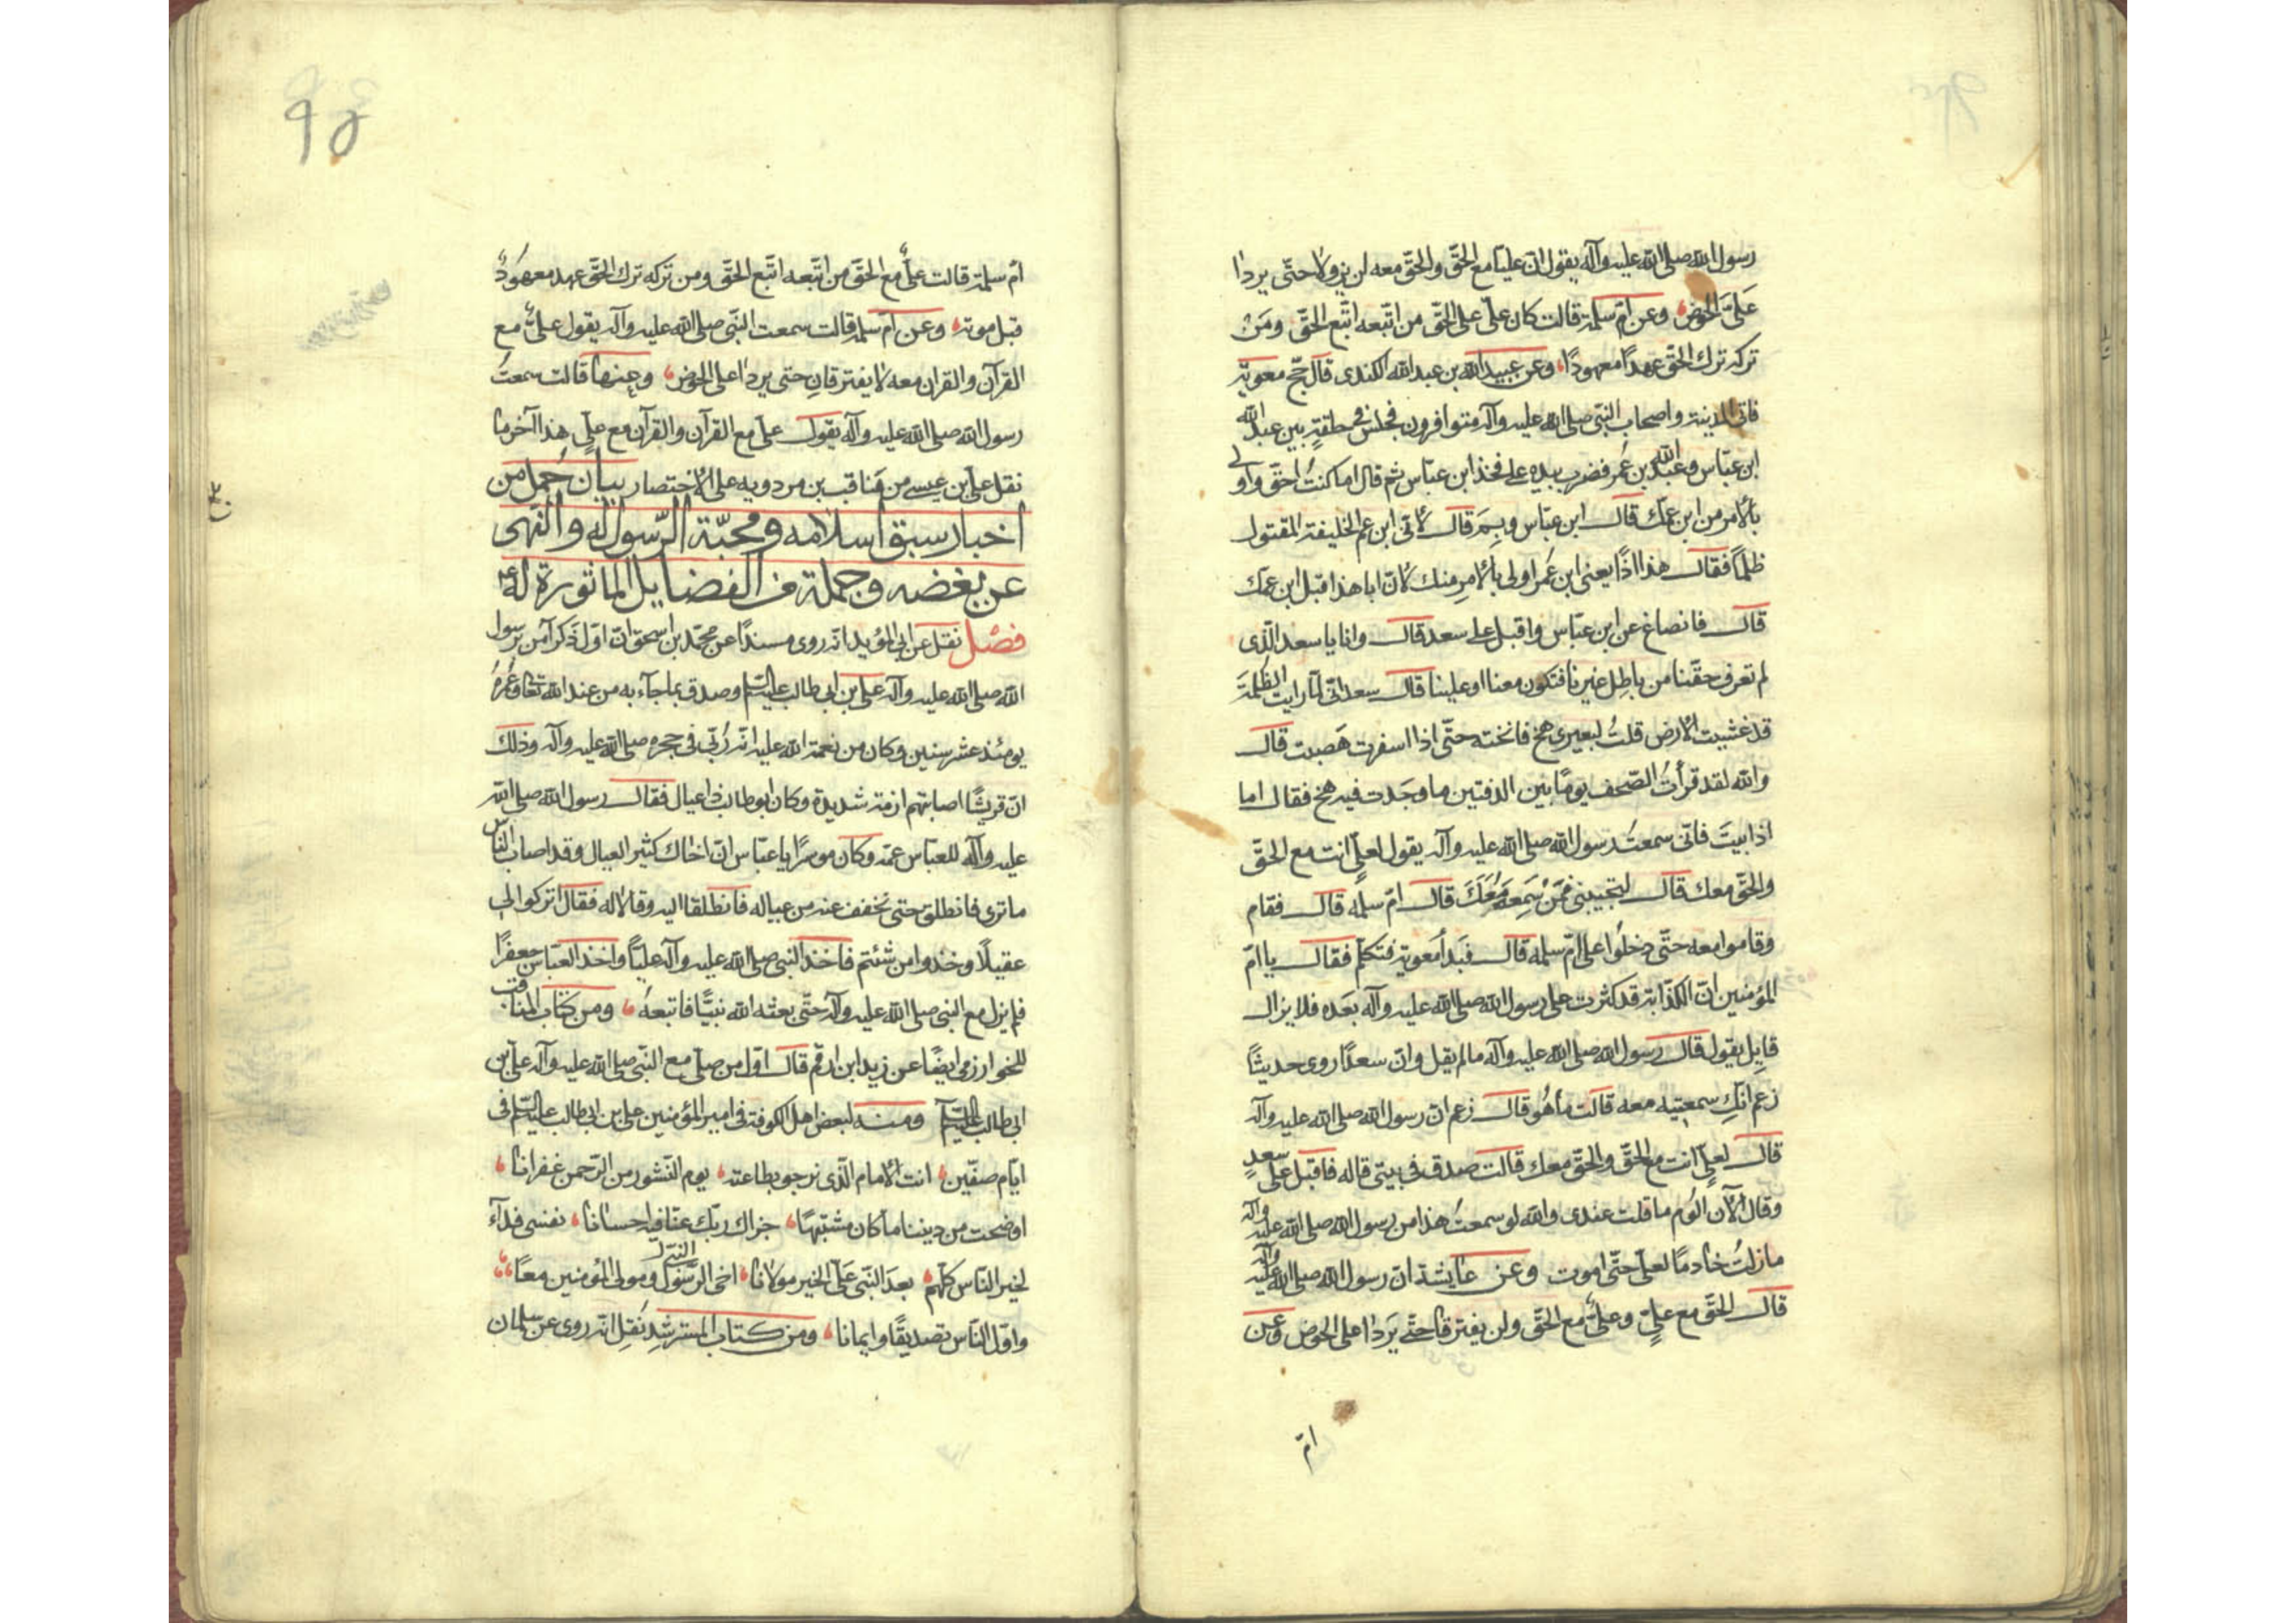 رسول الله صلى الله عليه وآله يقول ان عليا مع الحقّ والحقّ معه لن يزولا حتّى يردا
عَلَىَّ الحوض وعن امّ سلمة قالت كان علىّ على الحقّ من اتّبعه اتّبع الحقّ ومَنْ
تركه ترك الحقّ عهدًا معهودًا وعن عبيد الله بن عبد الله الكندى قال حجّ معوية
فاتى المدينة واصحاب النبّى صلى الله عليه وآله متوافرون فجلس فى حلقةٍ بين عبد الله
ابن عبّاس وعبد الله بن عُمر فضرب بيده على فخذ ابن عبّاس ثم قال اما كنتُ احقّ واولى
بالأمر من ابن عمّك قال ابن عبّاس وبِمَ قال لأنّى ابن عم الخليفة المقتول
ظلمًا فقال هذا اذًا يعنى ابن عُمر اولى بالأمرِ منك لأنّ ابا هذا قبل ابن عمّك
قال فانصاغ عن ابن عبّاس واقبل على سعد قال وانا يا سعد الّذى
لم تعرف حقّنا من باطِل غيرنا فتكون معنا او علينا قال سعد انّى لمّا رايت الظُلمةَ
قد غشيت الأرض قلتُ لبعيرى هخ فانخته حتّى اذا اسفرت مَضيت قال
والله لقد قرأتُ الصّحف يومًا بين الدفتين ما وجَدت فيه هخ فقال اما
اذا ابيتَ فانّى سمعتُ رسول الله صلى الله عليه وآله يقول لعلىٍّ انت مع الحقّ
والحقّ معك قال لتجيبنى فمَنْ سَمِعَهُ مَعَكَ قال امّ سلمه قال فقام
وقاموا معه حتّى دخلُوا على امّ سلمه قال فبَدأ معوية فتكلّم فقال يا امّ
المؤمنين انّ الكذّابة قد كثرت على رسول الله صلى الله عليه وآله بَعَده فلا يزال
قايل يقول قال رسول الله صلى الله عليه وآله ما لم يقل وانّ سعدًا روى حديثًا
زعم انّكِ سمعتِيه معه قالَت ما هُو قال زعم ان رسول الله صلى الله عليه وآله
قال لعلىٍّ انت مع الحقّ والحقّ معك قالت صدق فى بيتى قاله فاقبل على سعدٍ
وقال الآن الوُم ما قلت عندى والله لو سمعتُ هذا من رسول الله صلى الله عليه وآله
ما زلتُ خادمًا لعلىّ حتّى اموت وعن عايشة ان رسول الله صلى الله عليه وآله
قال الحقّ مع علىٍّ وعلىٌّ مع الحقّ ولن يفترقا حتّى يَردا على الحوض وعن
امّ
امّ سلمة قالت علىٌّ مع الحقّ من اتّبعه اتّبع الحقّ ومن تركه ترك الحقّ عهد معهودٌ
قبل موته وعن امّ سلمه قالت سمعت النبّى صلى الله عليه وآله يقول علىٌّ مع
القرآن والقران معه لا يفترقانِ حتى يردا على الحوض وعنها قالت سمعتُ
رسول الله صلى الله عليه وآله يقول علىّ مع القرآن والقرآن مع علىٍّ هذا آخر ما
نقل على بن عيسى من مَناقب بن مردويه على الأختصار بيان جُمل من
اخبار سبق اسلامه ومحبّة الرّسول له والنهى
عن بغضه وجملة من الفضايل الماثورة له ع
فصْل نقل عن ابى المؤيد انّه روى مسندًا عن محمّد بن اسحق انّ اوّل ذَكرٍ آمن برسول
الله صلى الله عليه وآله على بن ابى طالب عليه السلام وصدق بما جآء به من عند الله تعالى وعُمْرُهُ
يومئذ عشر سنين وكان من نعمة الله عليه انّه رُبّى فى حجره صلى الله عليه وآله وذلك
انّ قريشًا اصابتهم ازمة شديدة وكان ابو طالب ذا عيال فقال رسول الله صلى الله
عليه وآله للعبّاس عمّه وكان موسرًا يا عبّاس انّ اخاك كثير العيال وقد اصاب النّاس
ما ترى فانطلق حتى نخفف عنه من عياله فانطلقا اليه وقالا له فقال اتركوا لى
عقيلًا وخذوا من شئتم فاخذ النبّى صلى الله عليه وآله عليًّا واخذ العبّاس جعفرًا
فلم يزل مع النبى صلى الله عليه وآله حتّى بعثه الله نبيًّا فاتبعهُ ومن كتاب المناقب
للخوارزمى ايضًا عن زيد ابن ارقم قال اوّل من صلّى مع النبّى صلى الله عليه وآله على بن
ابى طالب عليه السلام ومنه لبعض اهل الكوفة فى امير المؤمنين على بن ابى طالب عليه السلام فى
ايّام صفّين انت الأمام الّذى نرجو بطاعته يوم النّشور من الرّحمن غفرانا
اوضحت من ديننا ما كان مشتبهًا جزاك ربّك عنّا فيه احسانا نفسى فدآء
لخير النّاس كلّهم بعدَ النبّى علىّ الخير مولانا اخى الرّسول ومولى المؤمنين معًا
النبى ل
واوّل النّاس تصديقًا وايمانا ومن كتاب المسترشد نُقِل انّه روى عن سلمان